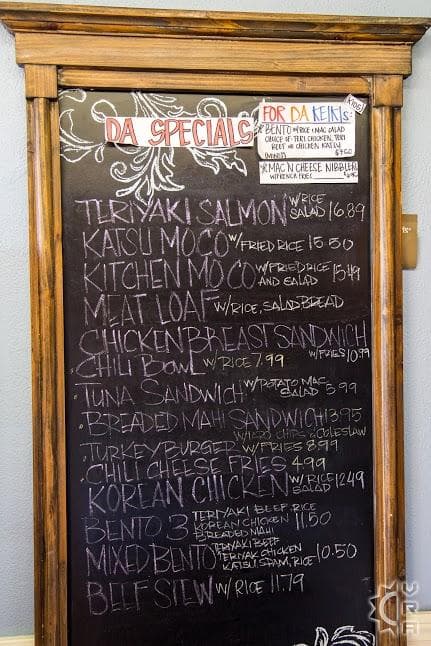 DA SPECIALS
FOR DA KEIKIs:
KIDS
BENTO W/RICE & MAC SALAD
CHOICE OF TERI CHICKEN, TERI
BEEF OR CHICKEN KATSU
MAC 'N CHEESE NIBBLERS
W/FRENCH FRIES
TERIYAKI SALMON W/RICE SALAD 16.89
KATSU MOCO W/FRIED RICE 15.50
KITCHEN MOCO W/FRIED RICE AND SALAD 15.49
MEAT LOAF W/RICE, SALAD, BREAD
CHICKEN BREAST SANDWICH
W/FRIES 10.99
CHILI BOWL W/RICE 7.99
TUNA SANDWICH W/POTATO MAC SALAD 5.99
BREADED MAHI SANDWICH 13.95
CHIPS & COLESLAW
TURKEY BURGER W/FRIES 8.99
CHILI CHEESE FRIES 4.99
KOREAN CHICKEN W/RICE SALAD 12.49
BENTO 3 TERIYAKI BEEF, RICE
KOREAN CHICKEN 11.50
BREADED MAHI
MIXED BENTO TERIYAKI BEEF
TERIYAKI CHICKEN 10.50
KATSU, SPAM, RICE
BEEF STEW W/RICE 11.79
URA